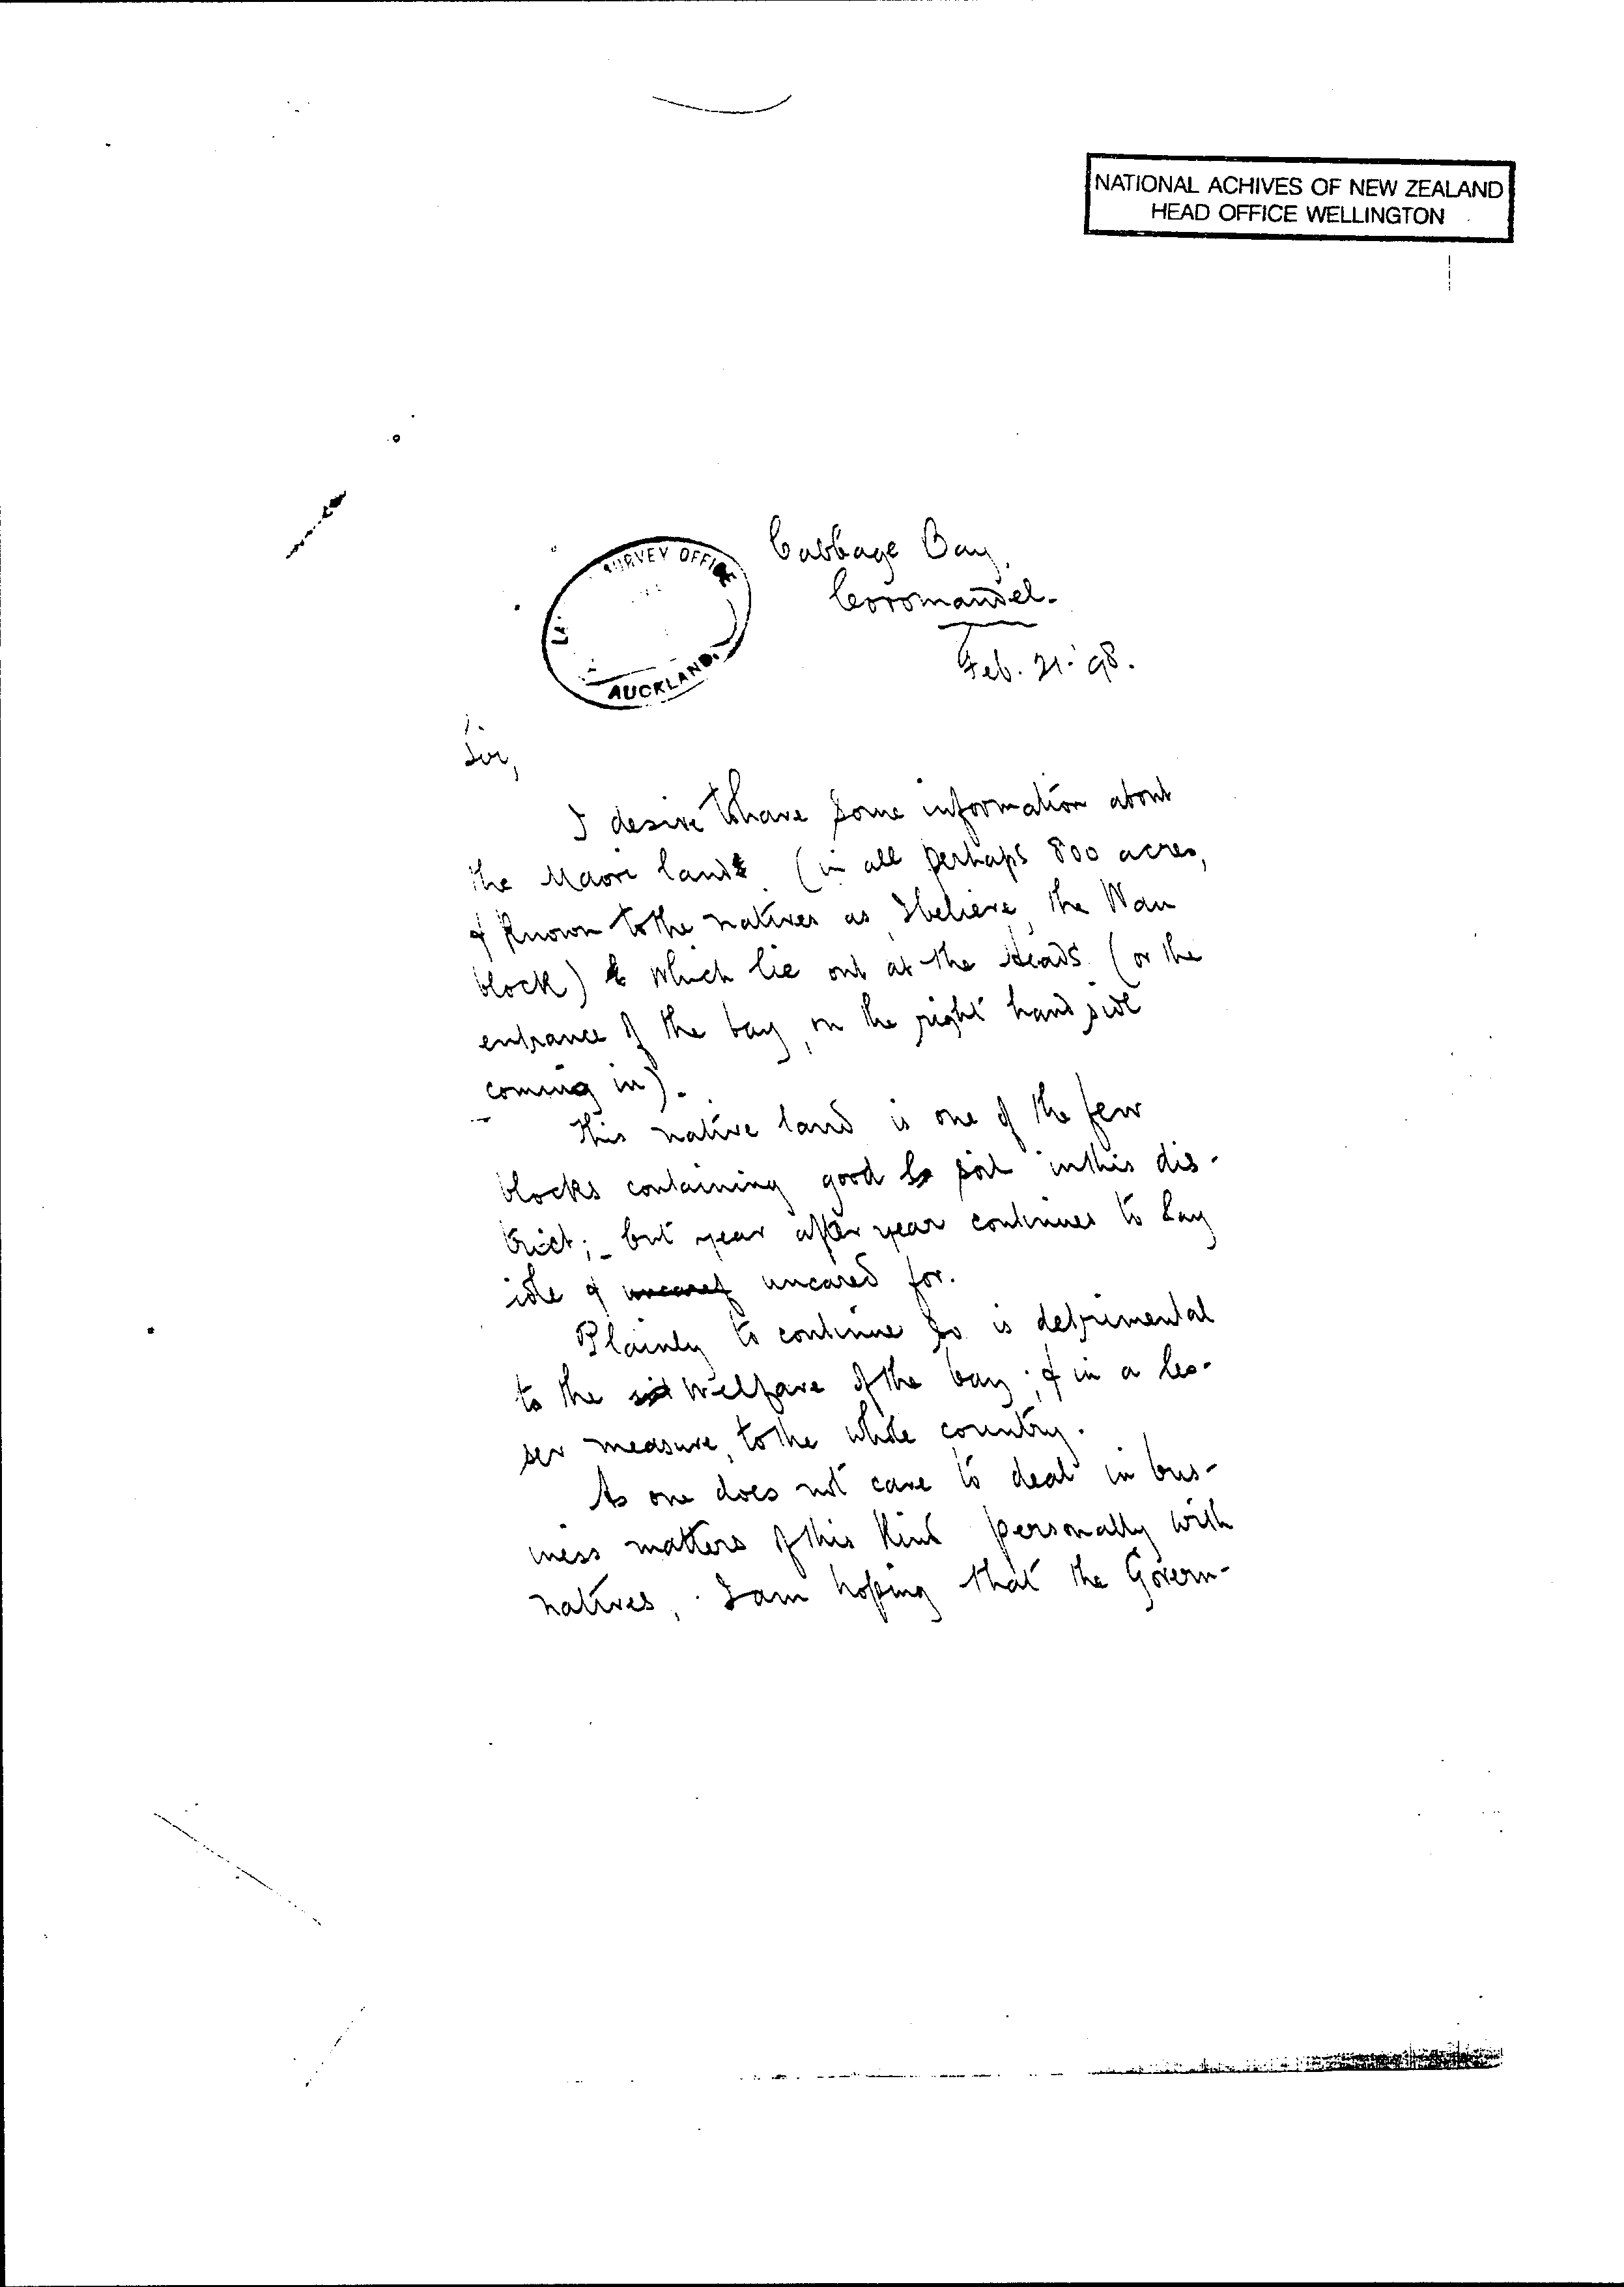 NATIONAL ACHIVES OF NEW ZEALAND
HEAD OFFICE WELLINGTON
SURVEY OFFICE
AUCKLAND.
Cabbage Bay,
Coromandel.
Feb. 21. '98.
Sir,
I desire to have some information about
the Maori lands (in all perhaps 800 acres,
& known to the natives as, I believe, the Wau
block) which lie out at the Heads (or the
entrance of the bay, on the right hand side
coming in).
This native land is one of the few
blocks containing good soil in this dis-
trict; but year after year continues to lay
idle & uncared for.
Plainly to continue so is detrimental
to the welfare of the bay; & in a les-
ser measure, to the whole country.
As one does not care to deal in bus-
iness matters of this kind personally with
natives, I am hoping that the Govern-